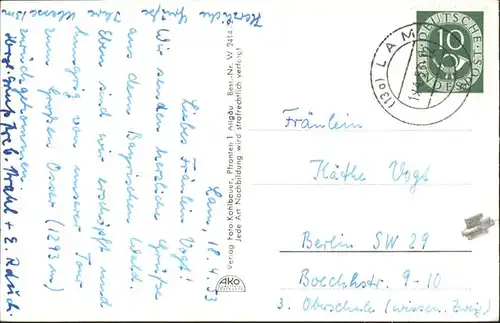 Lam, 18.4.53
Liebes Fräulein Vogt!
Wir senden herzliche Grüße
aus dem Bayrischen Wald.
Eben sind wir erschöpft und
hungrig von unserer Tour
zum Großen Osser (1293 m)
zurückgekommen.
Herzliche Grüße
Ihre Klasse 13m
Herzl. Grüße Ihre b. Strahl + E.
Verlag Foto Kohlbauer, Pfronten 1 Allgäu Best.-Nr. W 2414
Jede Art Nachbildung wird strafrechtlich verfolgt
AKO
DEUTSCHE POST
10
(13a) LAM
Fräulein
Käthe Vogt
Berlin SW 29
Boeckhstr. 9-10
3. Oberschule (wissen. Zweig)